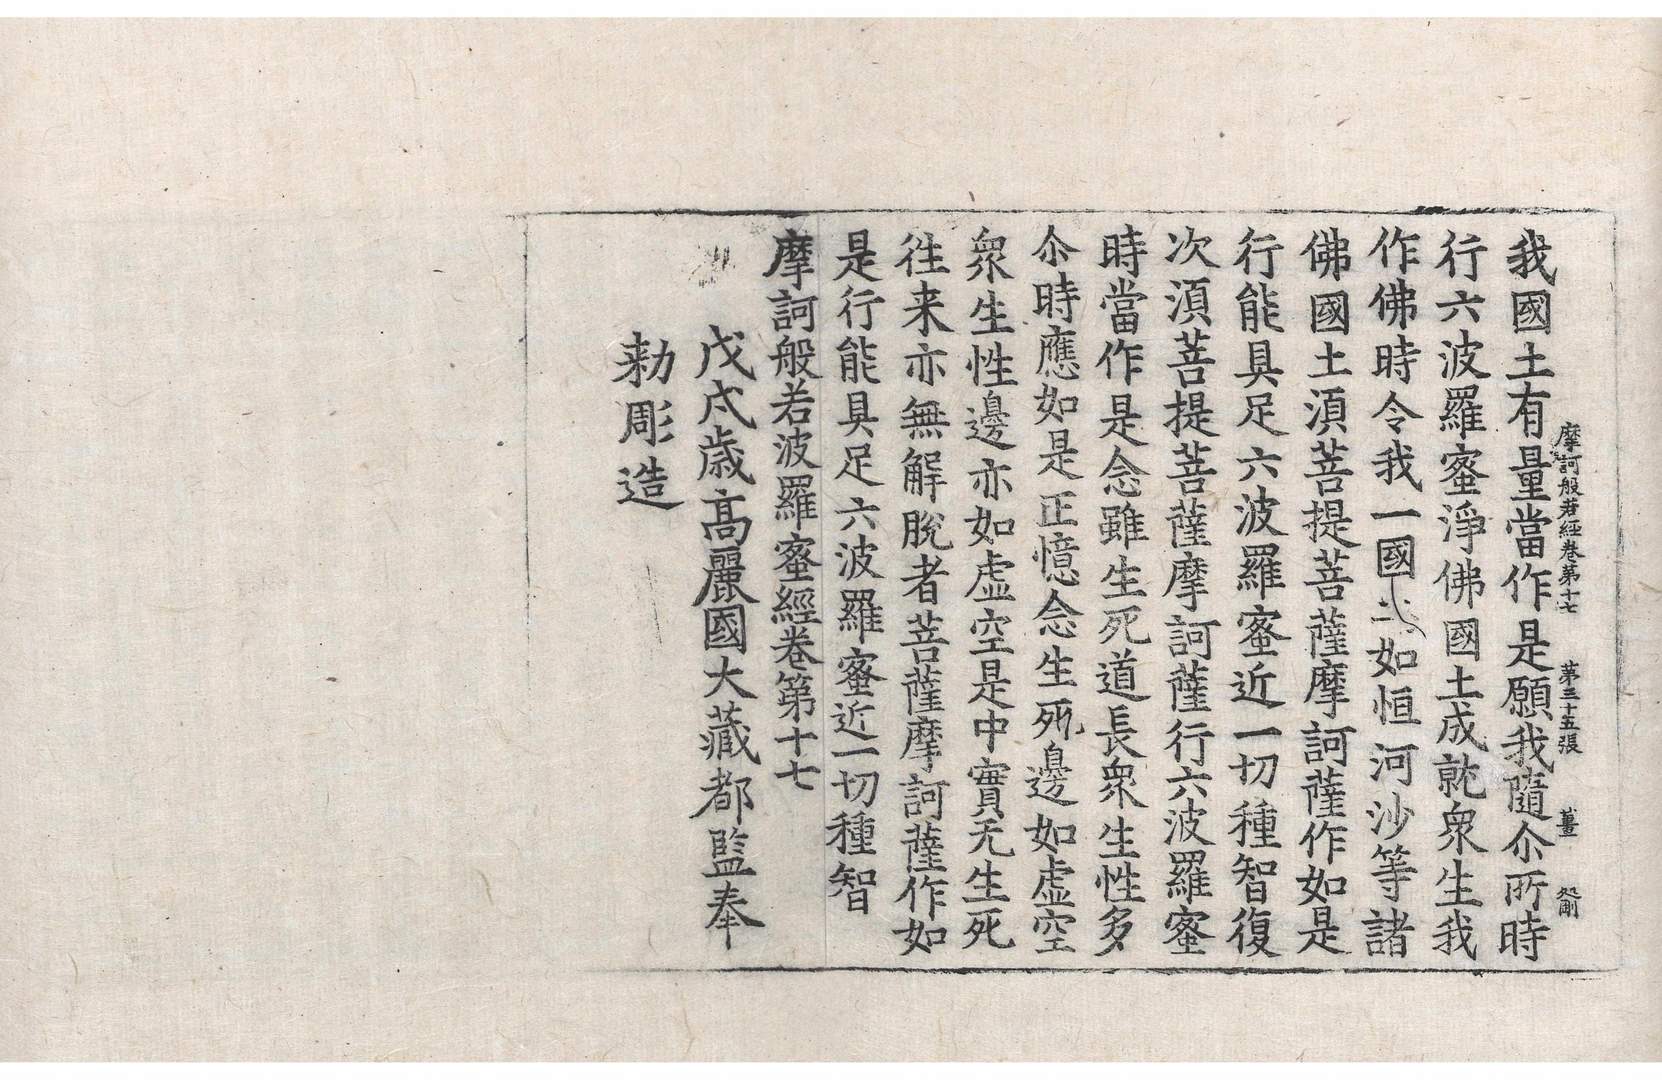 摩訶般若經卷第十七 第三十五張 薑
我國土有量當作是願我隨尒所時
行六波羅蜜淨佛國土成就衆生我
作佛時令我一國土如恒河沙等諸
佛國土湏菩提菩薩摩訶薩作如是
行能具足六波羅蜜近一切種智復
次湏菩提菩薩摩訶薩行六波羅蜜
時當作是念雖生死道長衆生性多
尒時應如是正憶念生死邊如虛空
衆生性邊亦如虛空是中實无生死
往来亦無解脫者菩薩摩訶薩作如
是行能具足六波羅蜜近一切種智
摩訶般若波羅蜜經卷第十七
戊戌歲高麗國大藏都監奉
勑彫造